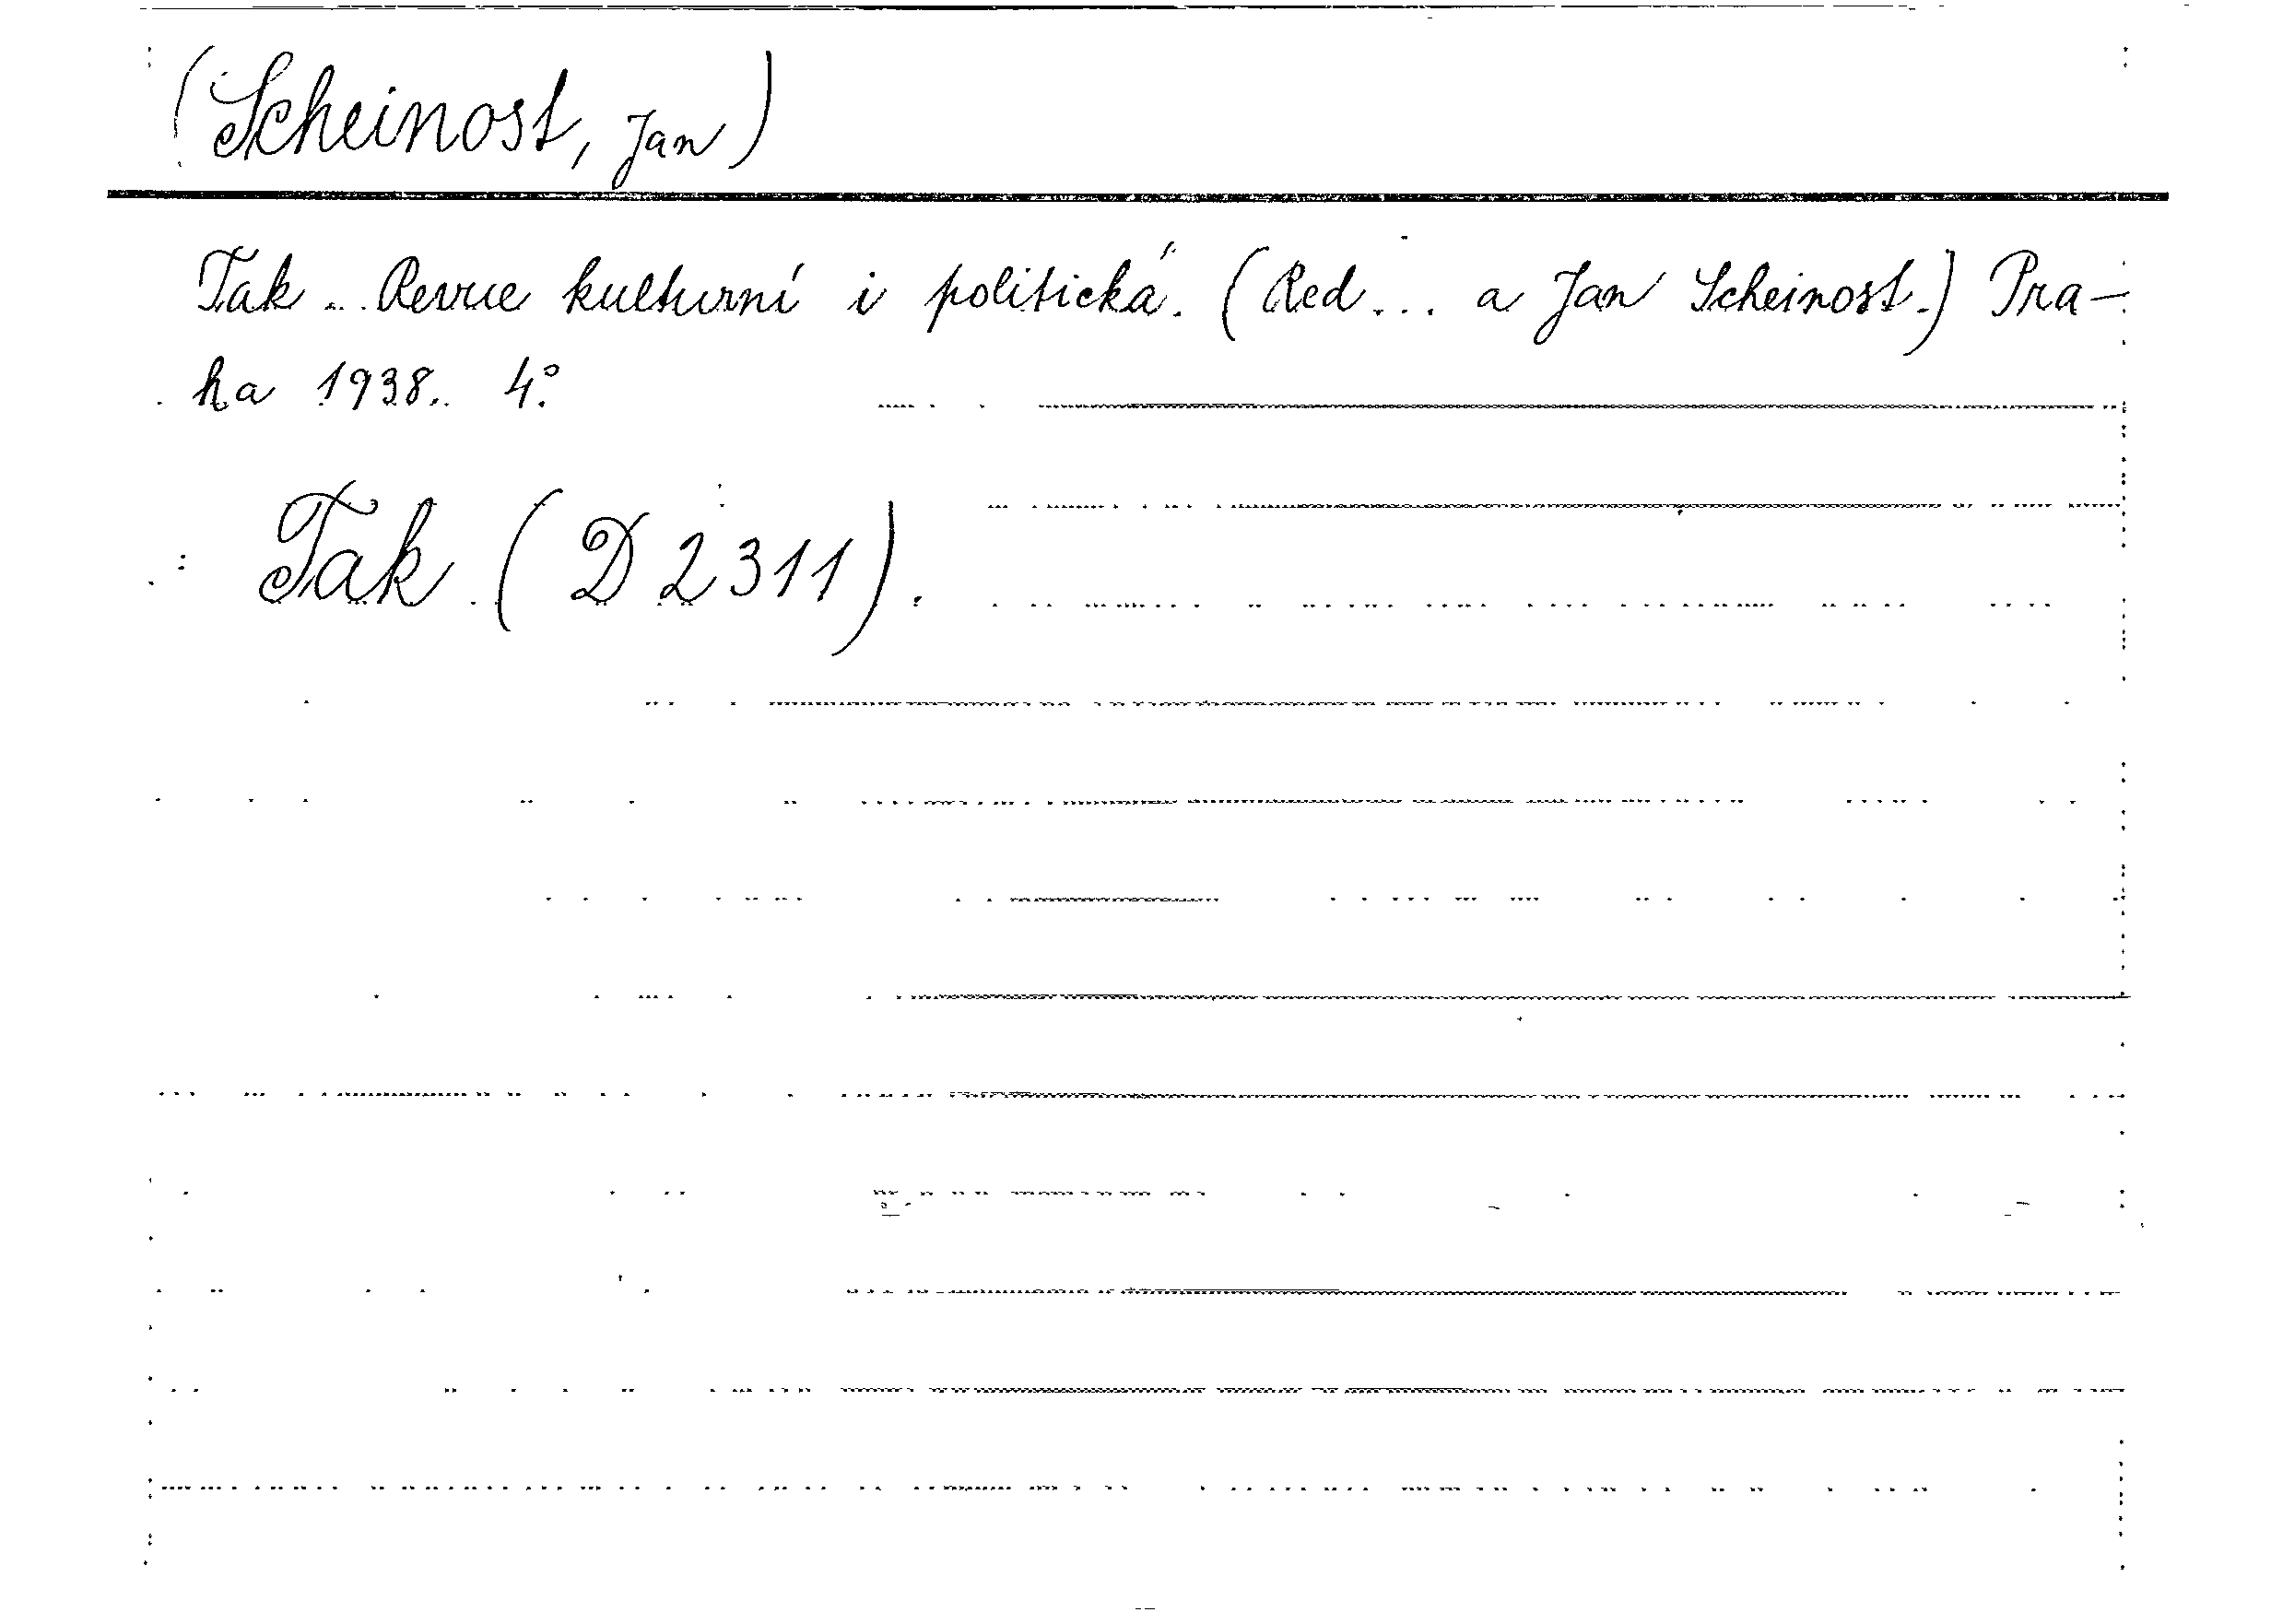 (Scheinost, Jan)
Tak... Revue kulturní i politická. (Red... a Jan Scheinost.) Pra-
ha 1938. 4°.
Tak (D 2311).